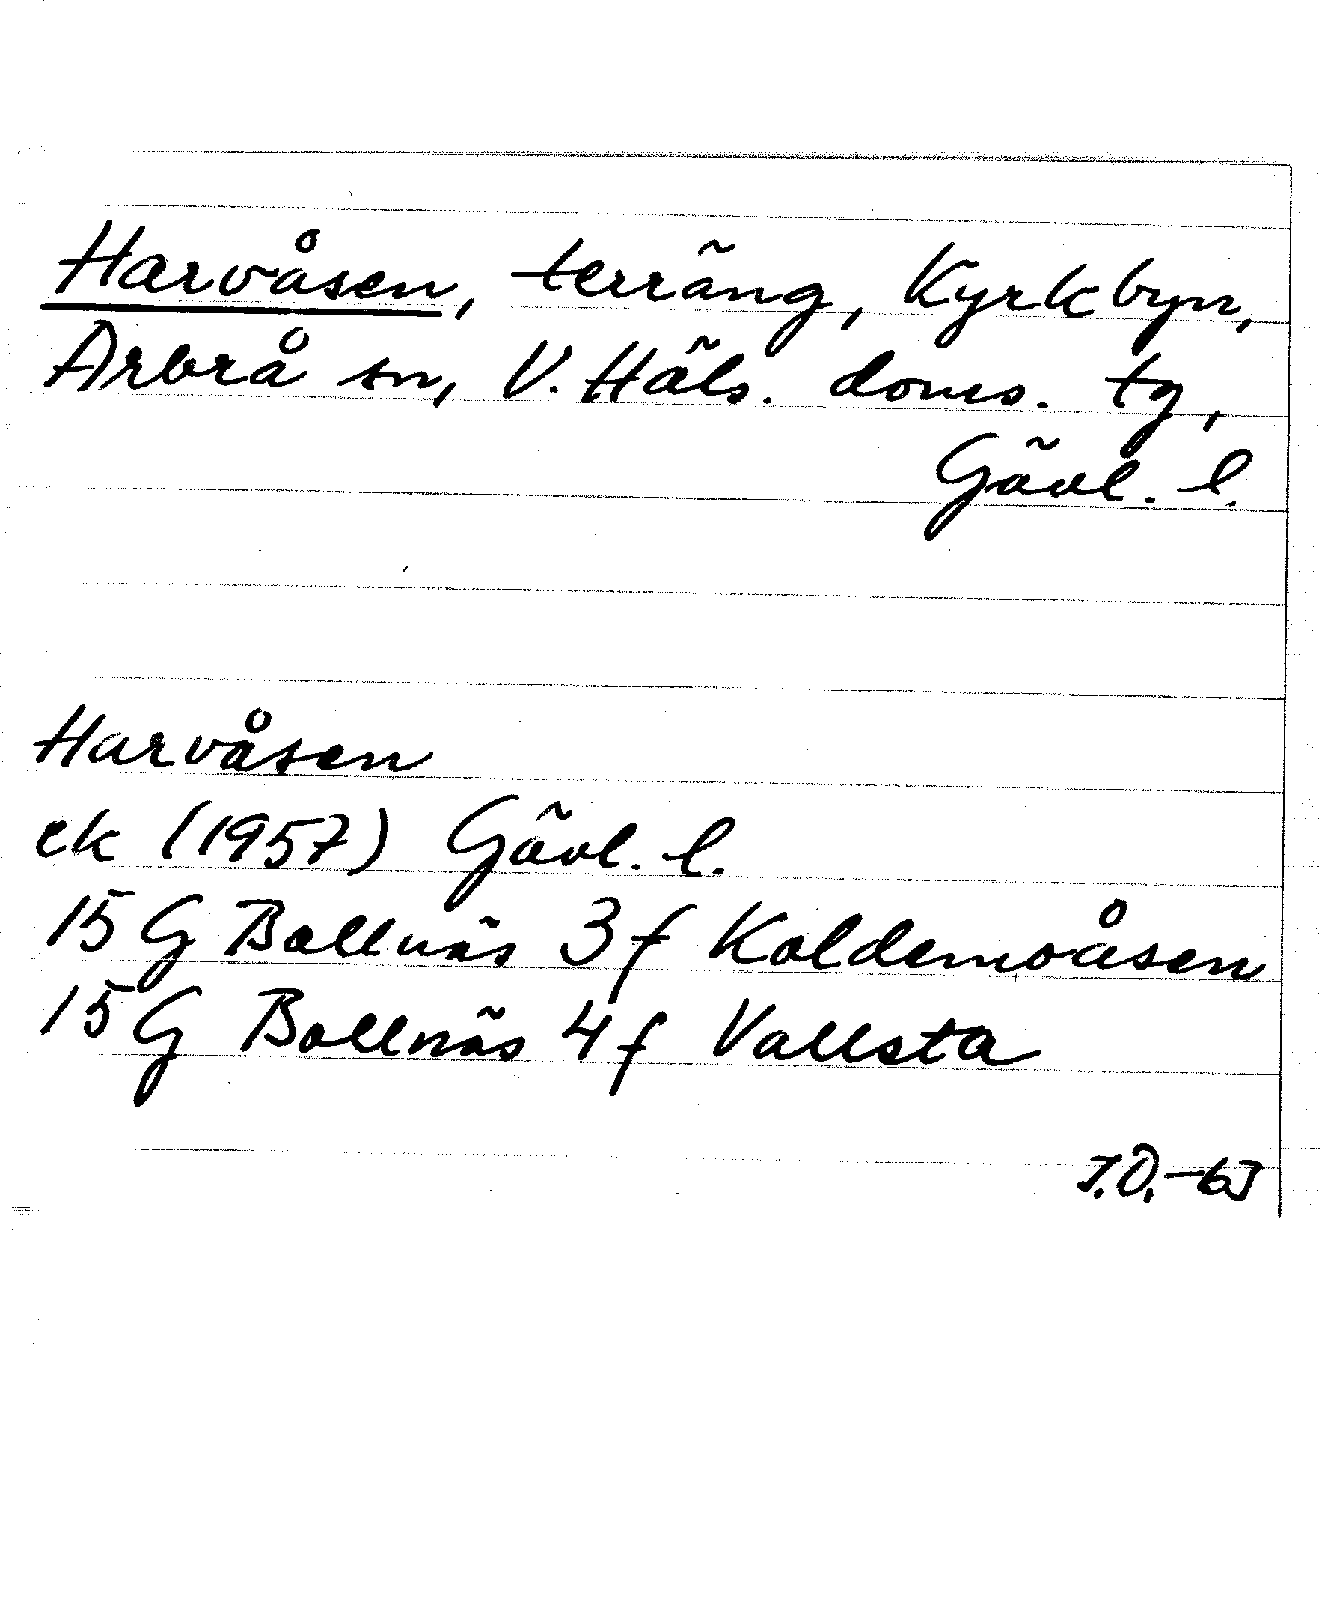 Harvåsen, terräng, Kyrkbyn,
Arbrå sn, V. Häls. doms. tg,
Gävl. l.
Harvåsen
ek (1957) Gävl. l.
15 G Bollnäs 3 f Koldemoåsen
15 G Bollnäs 4 f Vallsta
J.Ö.-63